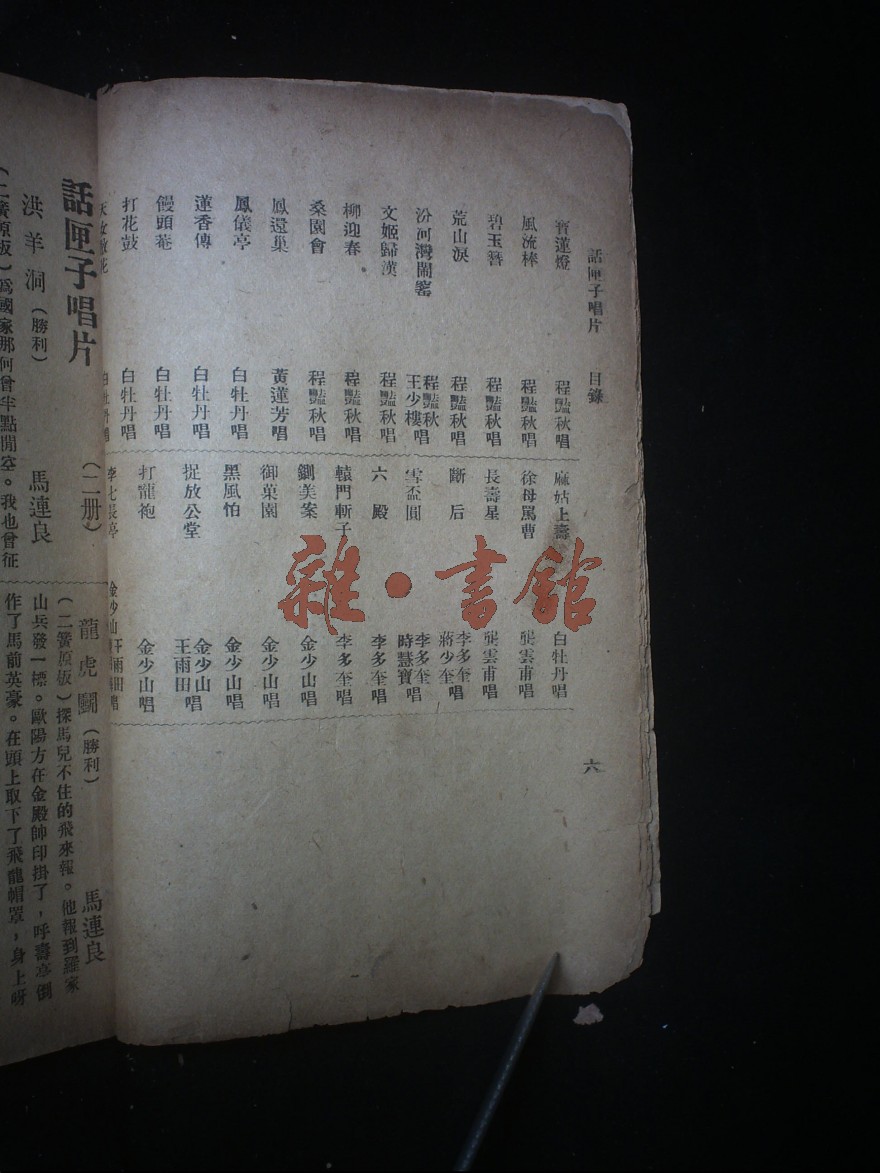 話匣子唱片 目錄 六
寶蓮燈 程豔秋唱
風流棒 程豔秋唱
碧玉簪 程豔秋唱
荒山淚 程豔秋唱
汾河灣鬧窰 程豔秋 王少樓唱
文姬歸漢 程豔秋唱
柳迎春 程豔秋唱
桑園會 程豔秋唱
鳳還巢 黃蓮芳唱
鳳儀亭 白牡丹唱
蓮香傳 白牡丹唱
饅頭菴 白牡丹唱
打花鼓 白牡丹唱
天女散花 白牡丹唱
麻姑上壽 白牡丹唱
徐母罵曹 龔雲甫唱
長壽星 龔雲甫唱
斷后 李多奎 蔣少奎唱
雪盃圓 李多奎 時慧寶唱
六殿 李多奎唱
轅門斬子 李多奎唱
鍘美案 金少山唱
御菓園 金少山唱
黑風怕 金少山唱
捉放公堂 金少山 王雨田唱
打龍袍 金少山唱
李七長亭 金少山 王雨田唱
雜·書館
話匣子唱片 (二册)
洪羊洞 (勝利) 馬連良
(二簧原板)爲國家那何曾半點閒空。我也曾征
龍虎鬭 (勝利) 馬連良
(二簧原板)探馬兒不住的飛來報。他報到羅家
山兵發一標。歐陽方在金殿帥印掛了,呼壽亭倒
作了馬前英豪。在頭上取下了飛龍帽罩,身上呀